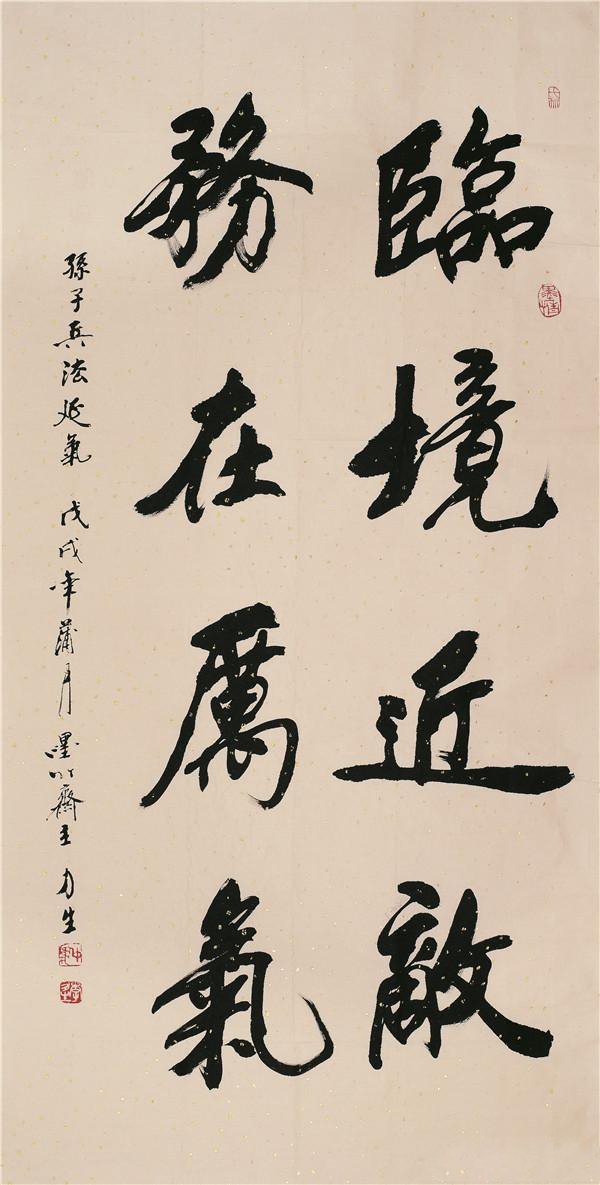 臨境近敵
務在厲氣
孫子兵法延氣 戊戌年蒲月 墨竹齋主 力生